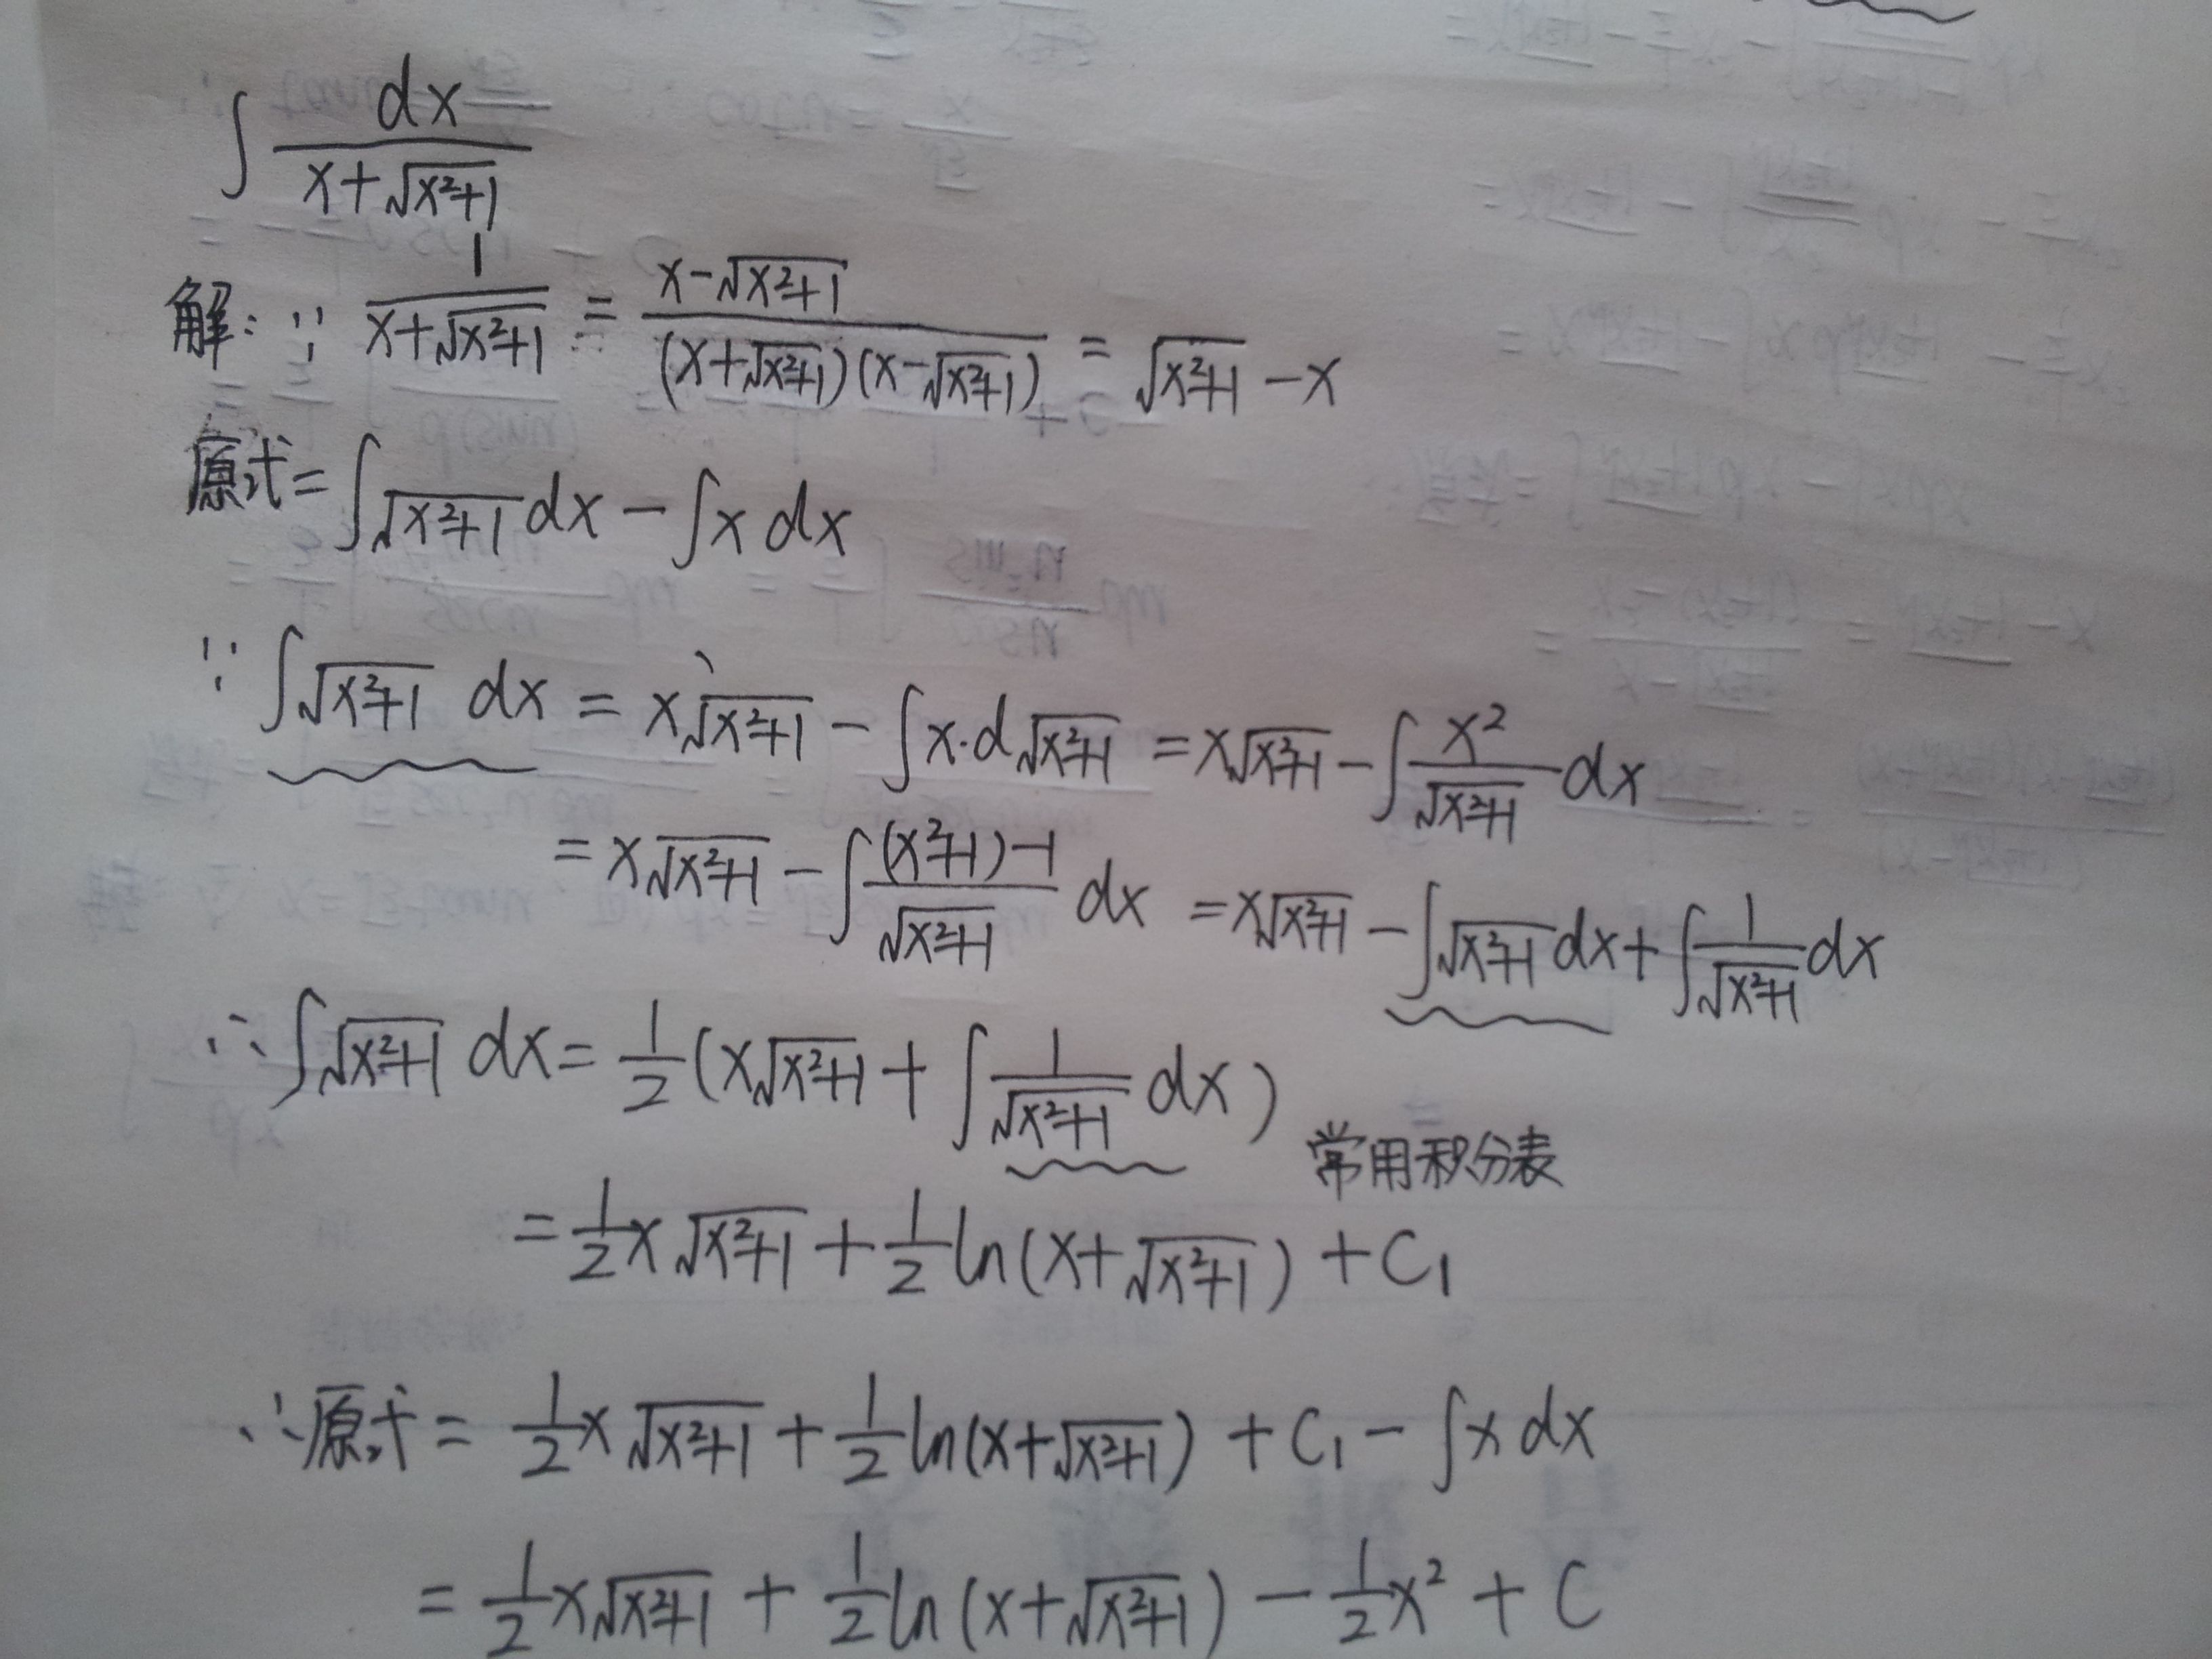 ∫ dx/(x+√(x²+1))
解: ∵ 1/(x+√(x²+1)) = (x-√(x²+1))/((x+√(x²+1))(x-√(x²+1))) = √(x²+1) - x
原式 = ∫√(x²+1) dx - ∫x dx
∵ ∫√(x²+1) dx = x√(x²+1) - ∫x·d√(x²+1) = x√(x²+1) - ∫ x²/√(x²+1) dx
= x√(x²+1) - ∫ ((x²+1)-1)/√(x²+1) dx = x√(x²+1) - ∫√(x²+1) dx + ∫ 1/√(x²+1) dx
∴ ∫√(x²+1) dx = 1/2 (x√(x²+1) + ∫ 1/√(x²+1) dx)
常用积分表
= 1/2 x√(x²+1) + 1/2 ln(x+√(x²+1)) + C₁
∴原式 = 1/2 x√(x²+1) + 1/2 ln(x+√(x²+1)) + C₁ - ∫x dx
= 1/2 x√(x²+1) + 1/2 ln(x+√(x²+1)) - 1/2 x² + C